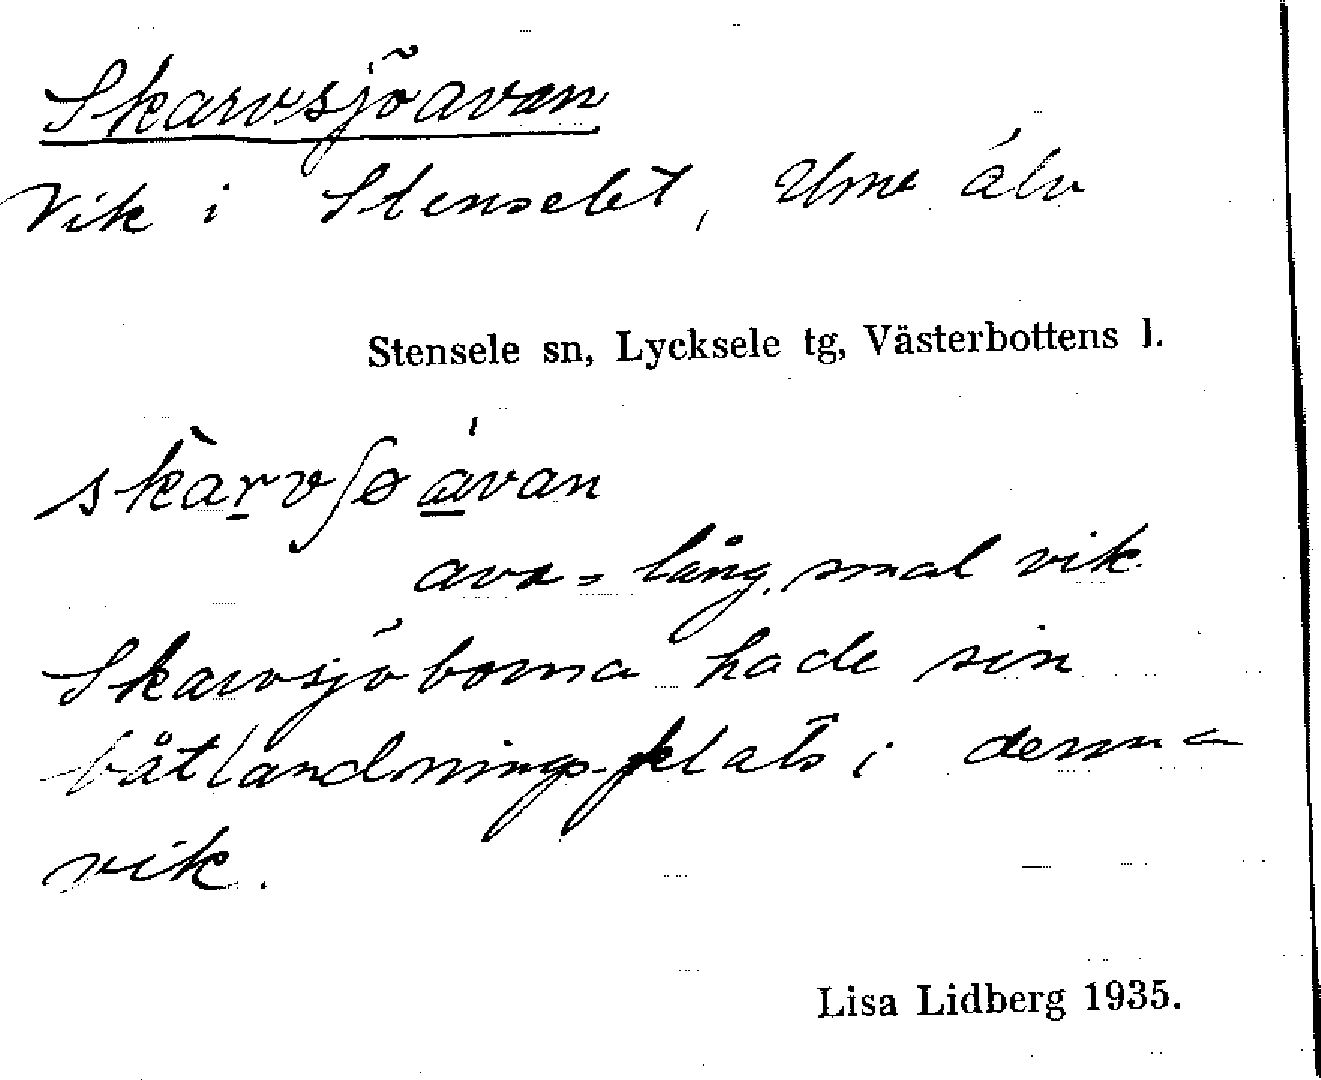 Skarvsjöavan
Vik i Stenselet, Ume älv
Stensele sn, Lycksele tg, Västerbottens l.
skàrvʃøávan
ava = lång, smal vik
Skarvsjöborna hade sin
båtlandningsplats i denna
vik.
Lisa Lidberg 1935.